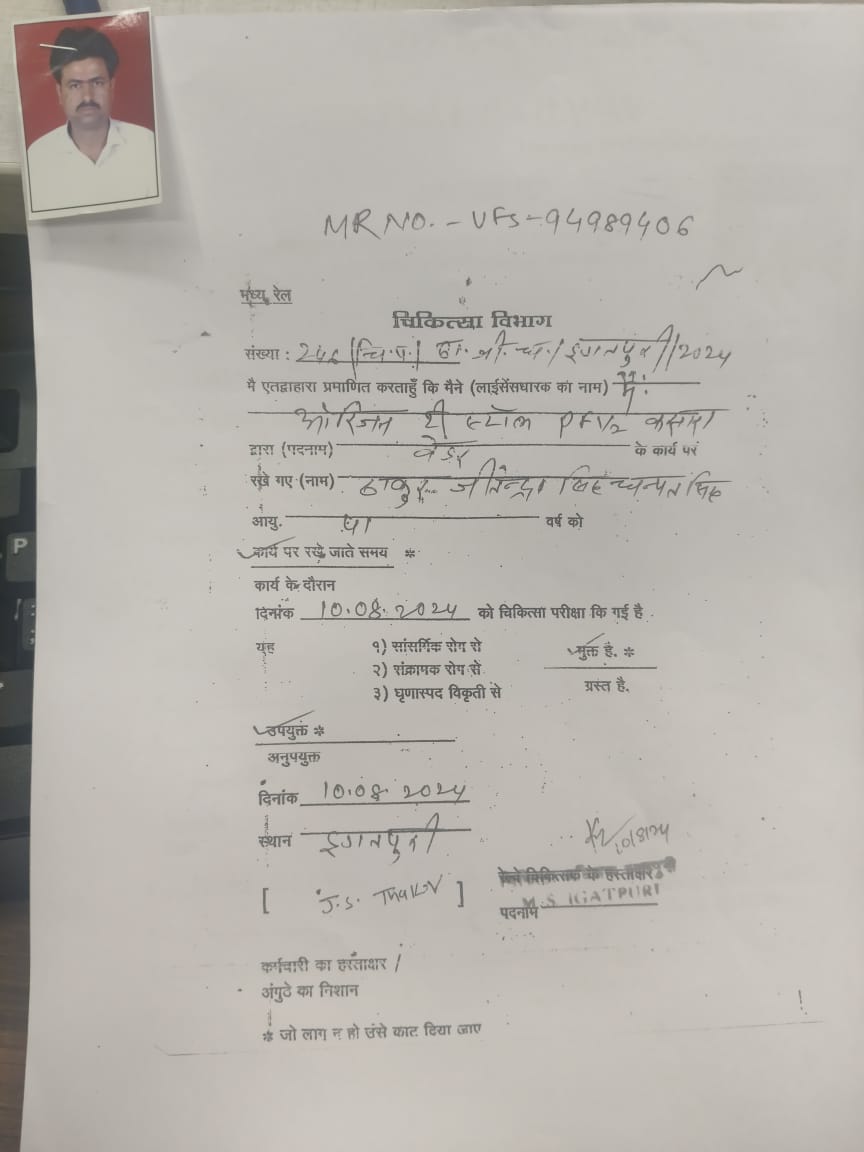 MR NO. - VFS - 94989406
मध्य रेल
चिकित्सा विभाग
संख्या : 246 / चि.प. / इगतपुरी / 2024
मै एतद्वाहारा प्रमाणित करताहुँ कि मैने (लाईसेंसधारक का नाम) मे.
ओरिजन टी स्टॉल PF 1/2 कसारा
द्वारा (पदनाम) वेंडर के कार्य पर
रखे गए (नाम) ठाकुर जीतेन्द्र सिंह
आयु. वर्ष को
कार्य पर रखे जाते समय *
कार्य के दौरान
दिनांक 10.08.2024 को चिकित्सा परीक्षा कि गई है .
यह १) सांसर्गिक रोग से मुक्त है. *
२) संक्रामक रोग से
३) घृणास्पद विकृती से ग्रस्त है.
उपयुक्त *
अनुपयुक्त
दिनांक 10.08.2024
स्थान इगतपुरी
10/8/24
रेल्वे चिकित्सक के हस्ताक्षर
[ J.S. Thakur ]
M.S. IGATPURI
पदनाम
कर्मचारी का हस्ताक्षर /
अंगुठे का निशान
* जो लागु न हो उसे काट दिया जाए
P